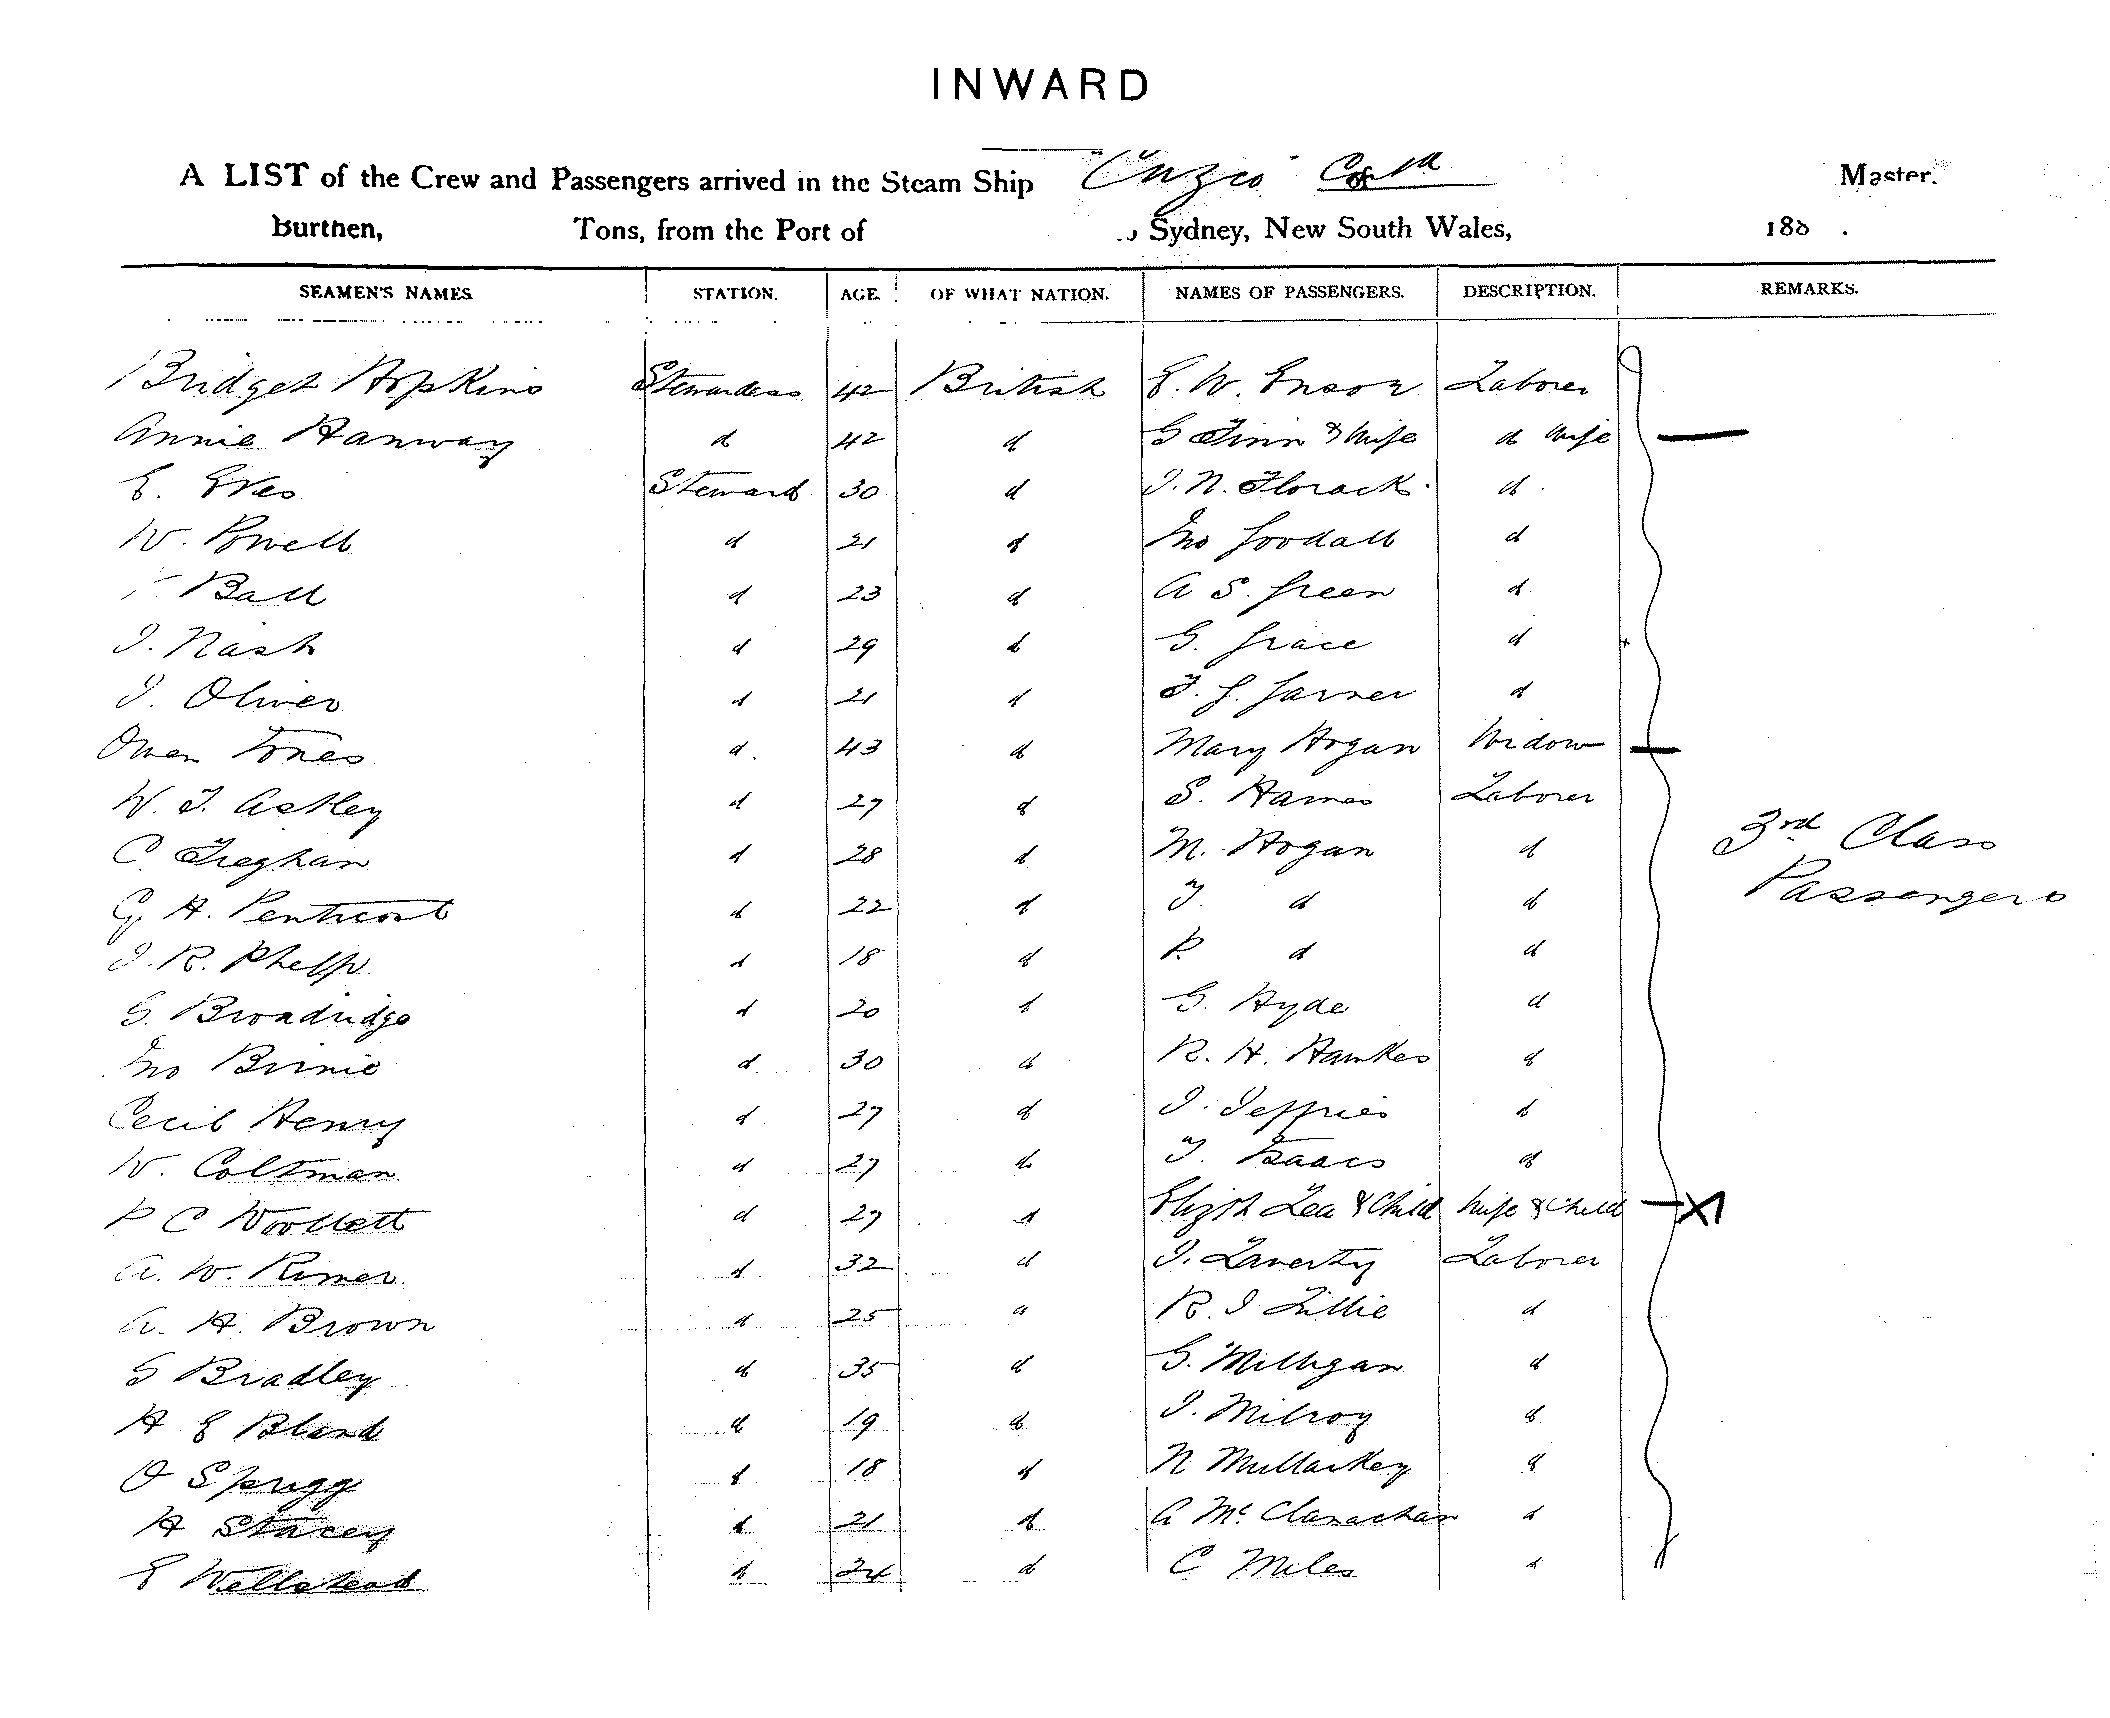 INWARD
A LIST of the Crew and Passengers arrived in the Steam Ship "Cuzco" Contd Master.
Burthen, Tons, from the Port of to Sydney, New South Wales, 188 .
SEAMEN'S NAMES STATION. AGE. OF WHAT NATION. NAMES OF PASSENGERS. DESCRIPTION. REMARKS.
Bridget Hopkins Stewardess 42 British E. W. Ensor Laborer
Annie Hanway d 42 d G Finn & Wife d Wife
E. Eves Steward 30 d J. N. Florack d
W. Powell d 21 d Jno Goodall d
Ball d 23 d A S. Green d
J. Nash d 29 d G. Grace d
J. Oliver d 21 d F. G. Garner d
Owen Jones d 43 d Mary Hogan Widow
W. J. Astley d 27 d S. Hames Laborer
C. Treghan d 28 d M. Hogan d
G H. Penticost d 22 d T. d d
J. R. Phelps d 18 d P. d d
G. Broadridge d 20 d G. Hyde d
Jno Birnie d 30 d R. H. Hawkes d
Cecil Henry d 27 d J. Jeffries d
W. Coltman d 27 d T. Isaacs d
P C Woollett d 27 d Elizth Lea & Child Wife & Child X
A. W. Rimer d 32 d J. Laverty Laborer
A. H. Brown d 25 d R. J Lillie d
G Bradley d 35 d G. Milligan d
H E Bland d 19 d J. Milroy d
O Sprigg d 18 d N Mullarkey d
H Stacey d 21 d A McClanachan d
E Wellstead d 24 d C Miles d
3rd Class
Passengers